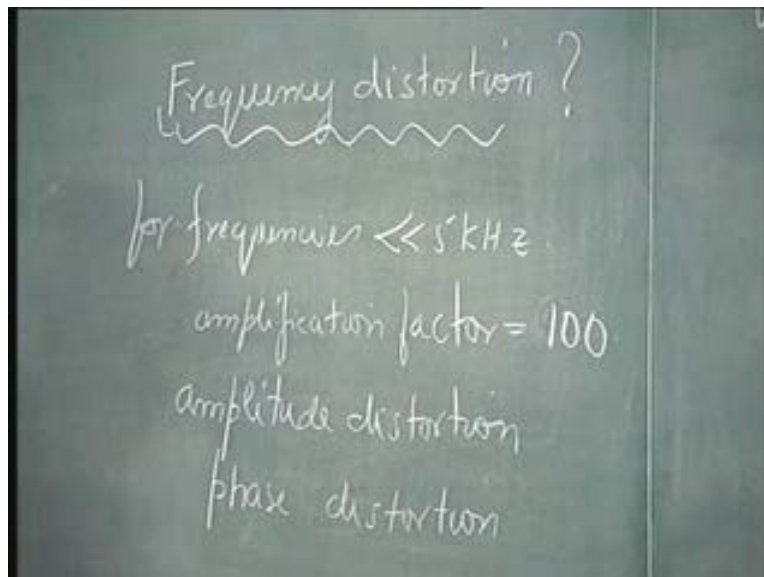 Frequency distortion ?
for frequencies << 5 kHz
amplification factor = 100
amplitude distortion
phase distortion